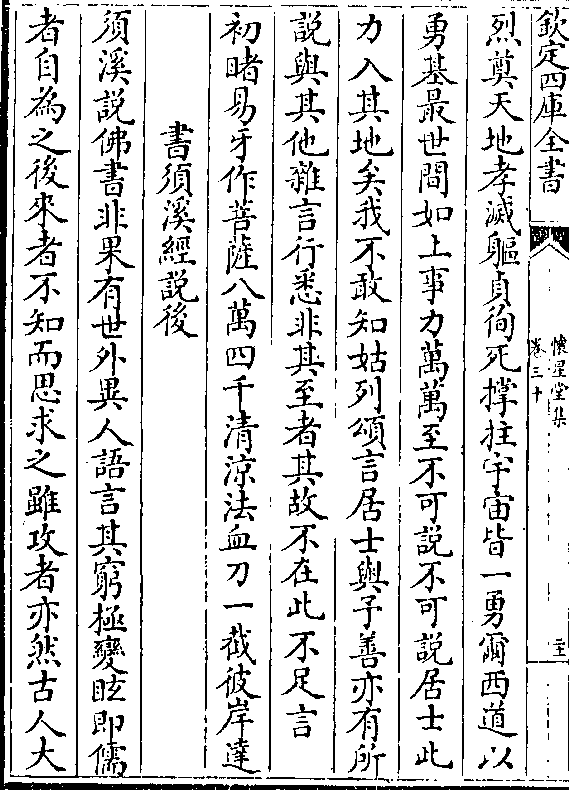 欽定四庫全書
懷星堂集
卷三十
烈奠天地孝滅軀貞徇死撐拄宇宙皆一勇爾西道以
勇基最世間如上事力萬萬至不可説不可説居士此
力入其地矣我不敢知姑列頌言居士與予善亦有所
説與其他雜言行悉非其至者其故不在此不足言
初睹易牙作菩薩八萬四千清涼法血刀一截彼岸達
書須溪經説後
須溪説佛書非果有世外異人語言其窮極變眩即儒
者自為之後來者不知而思求之雖攻者亦然古人大